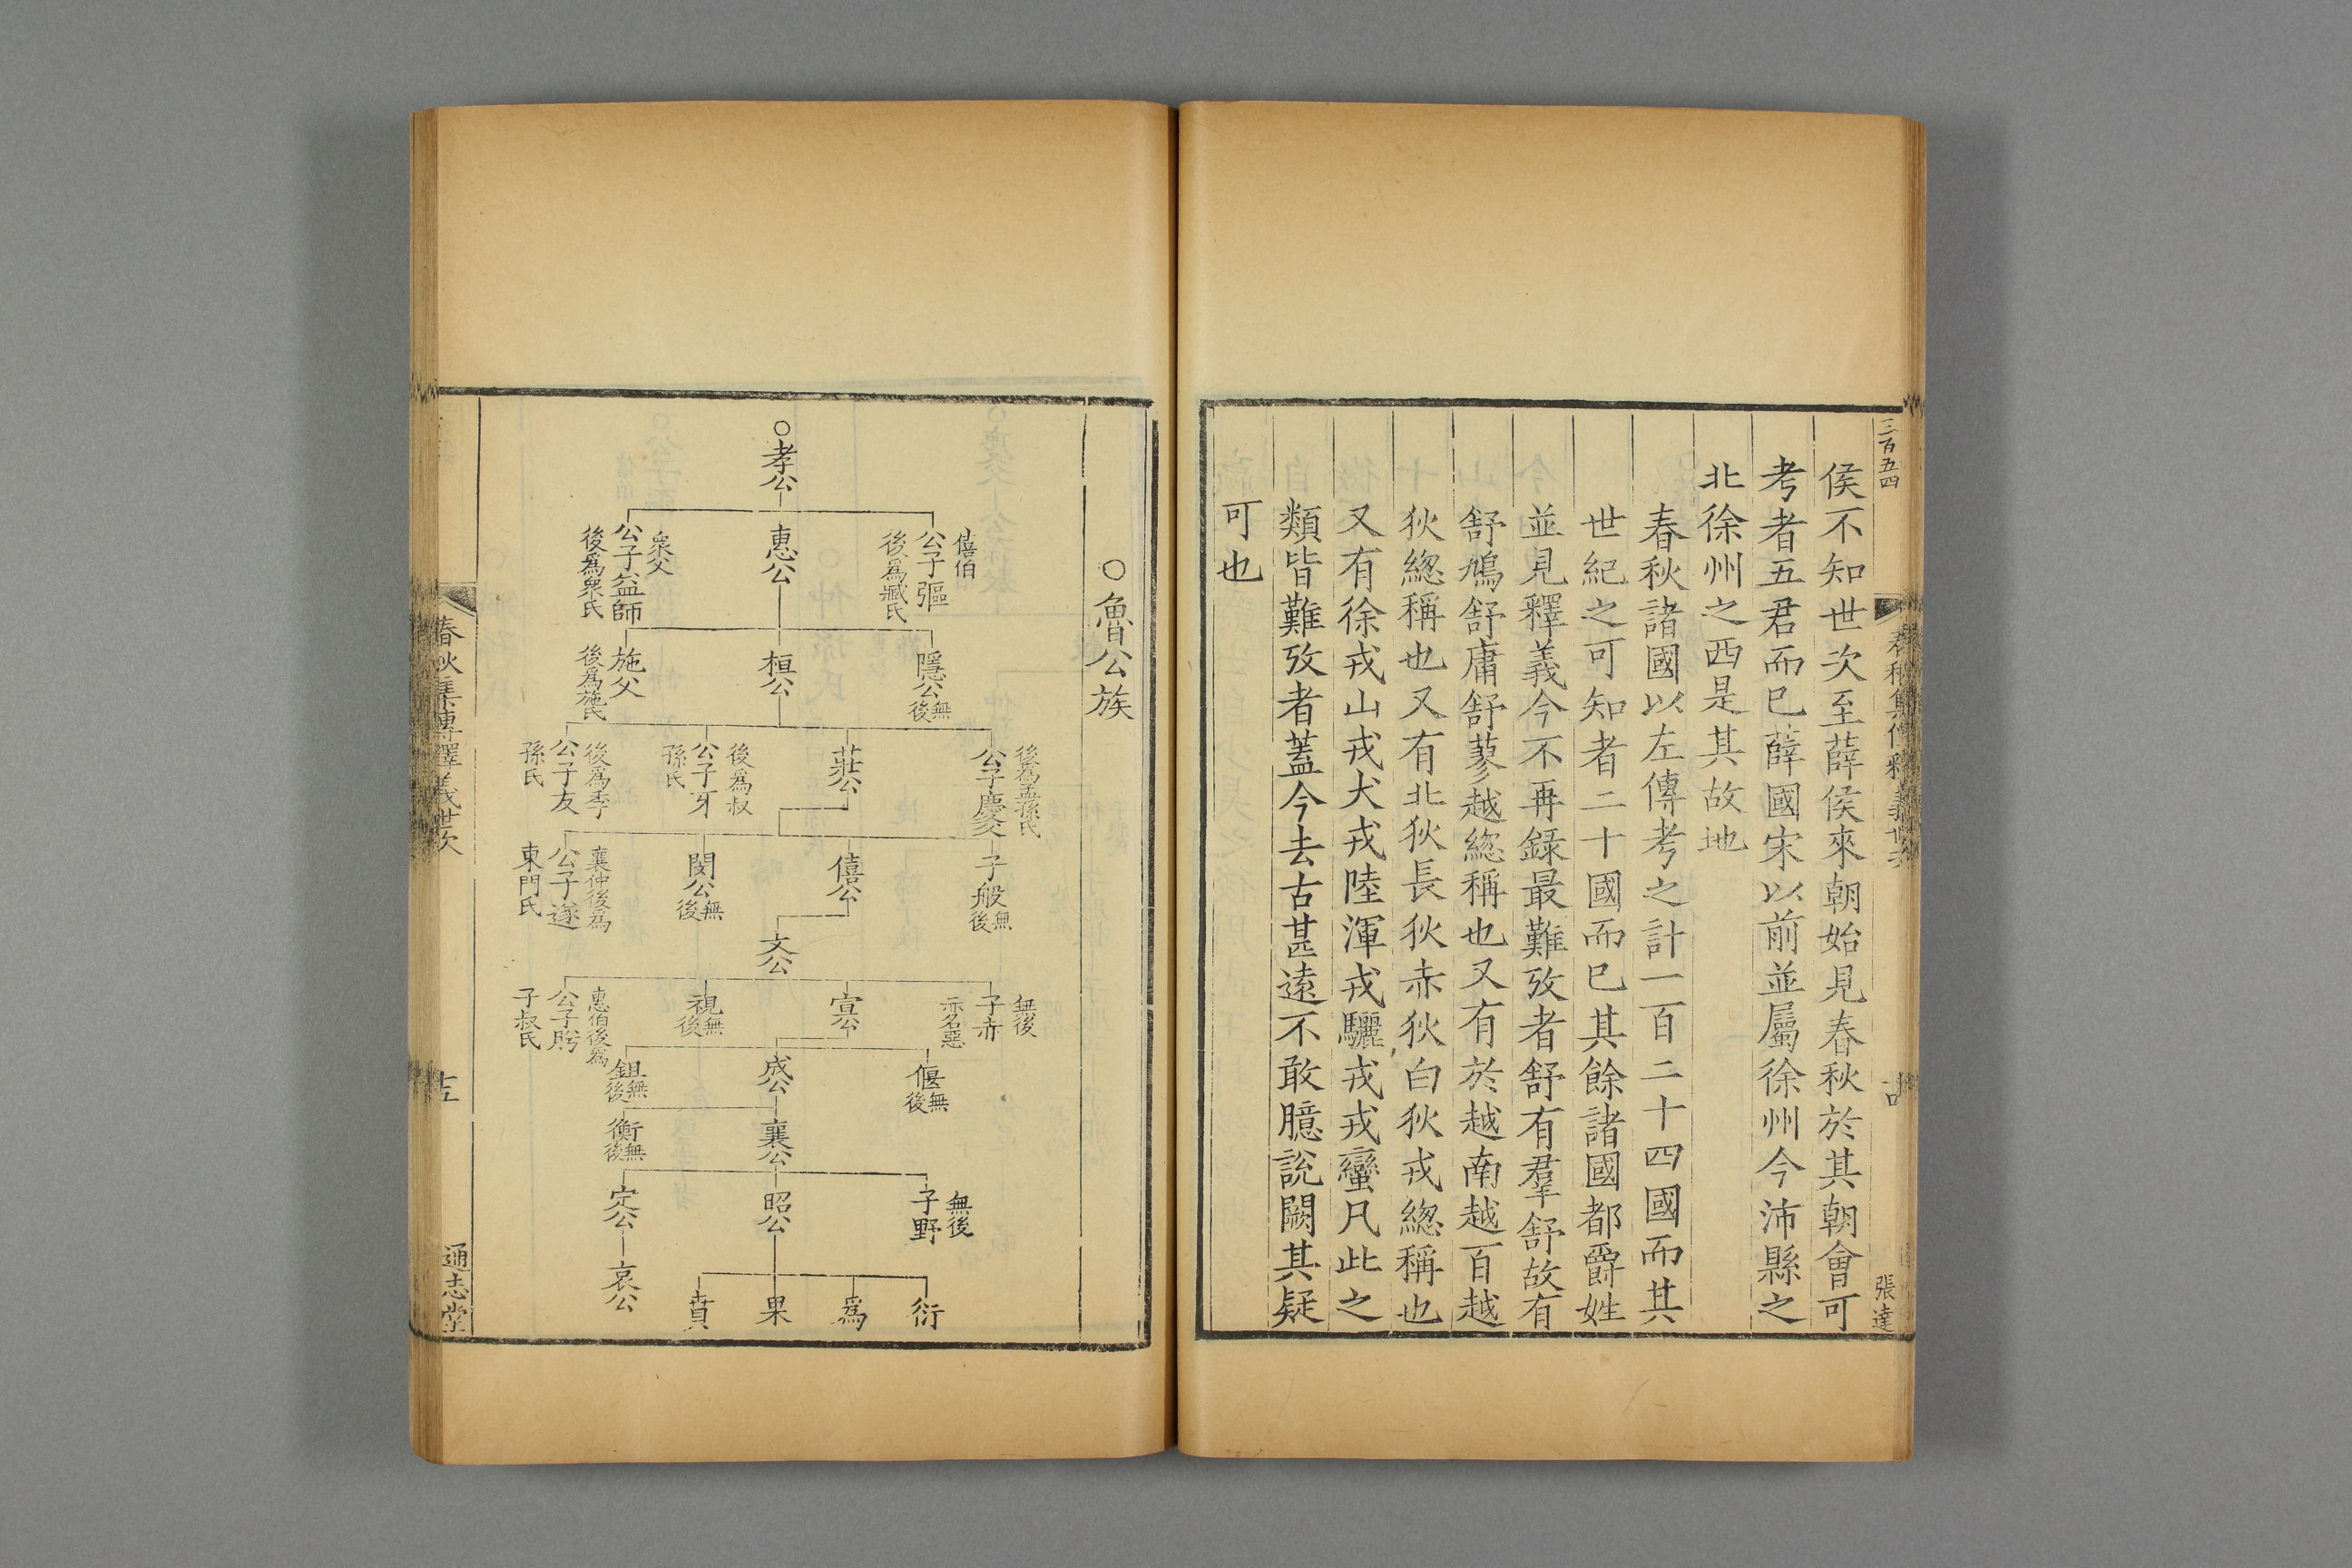 三百五四
侯不知世次至薛侯來朝始見春秋於其朝會可
考者五君而已薛國宋以前並屬徐州今沛縣之
北徐州之西是其故地
春秋諸國以左傳考之計一百二十四國而其
世紀之可知者二十國而已其餘諸國都爵姓
並見釋義今不再録最難攷者舒有羣舒故有
舒鳩舒庸舒蓼越緫稱也又有於越南越百越
狄緫稱也又有北狄長狄赤狄白狄戎緫稱也
又有徐戎山戎犬戎陸渾戎驪戎戎蠻凡此之
類皆難攷者蓋今去古甚遠不敢臆說闕其疑
可也
張達
○魯公族
○孝公
僖伯
公子彄
後爲臧氏
惠公
衆父
公子益師
後爲衆氏
隱公無後
桓公
施父
後爲施氏
後爲孟孫氏
公子慶父
莊公
後爲叔
公子牙
孫氏
後爲季
公子友
孫氏
子般無後
僖公
閔公無後
襄仲後爲
公子遂
東門氏
文公
無後
子赤
亦名惡
宣公
視無後
惠伯後爲
公子肹
子叔氏
偃無後
成公
鉏無後
襄公
衡無後
無後
子野
昭公
定公
哀公
衍
爲
果
賁
春秋集傳釋義世次
十五
通志堂